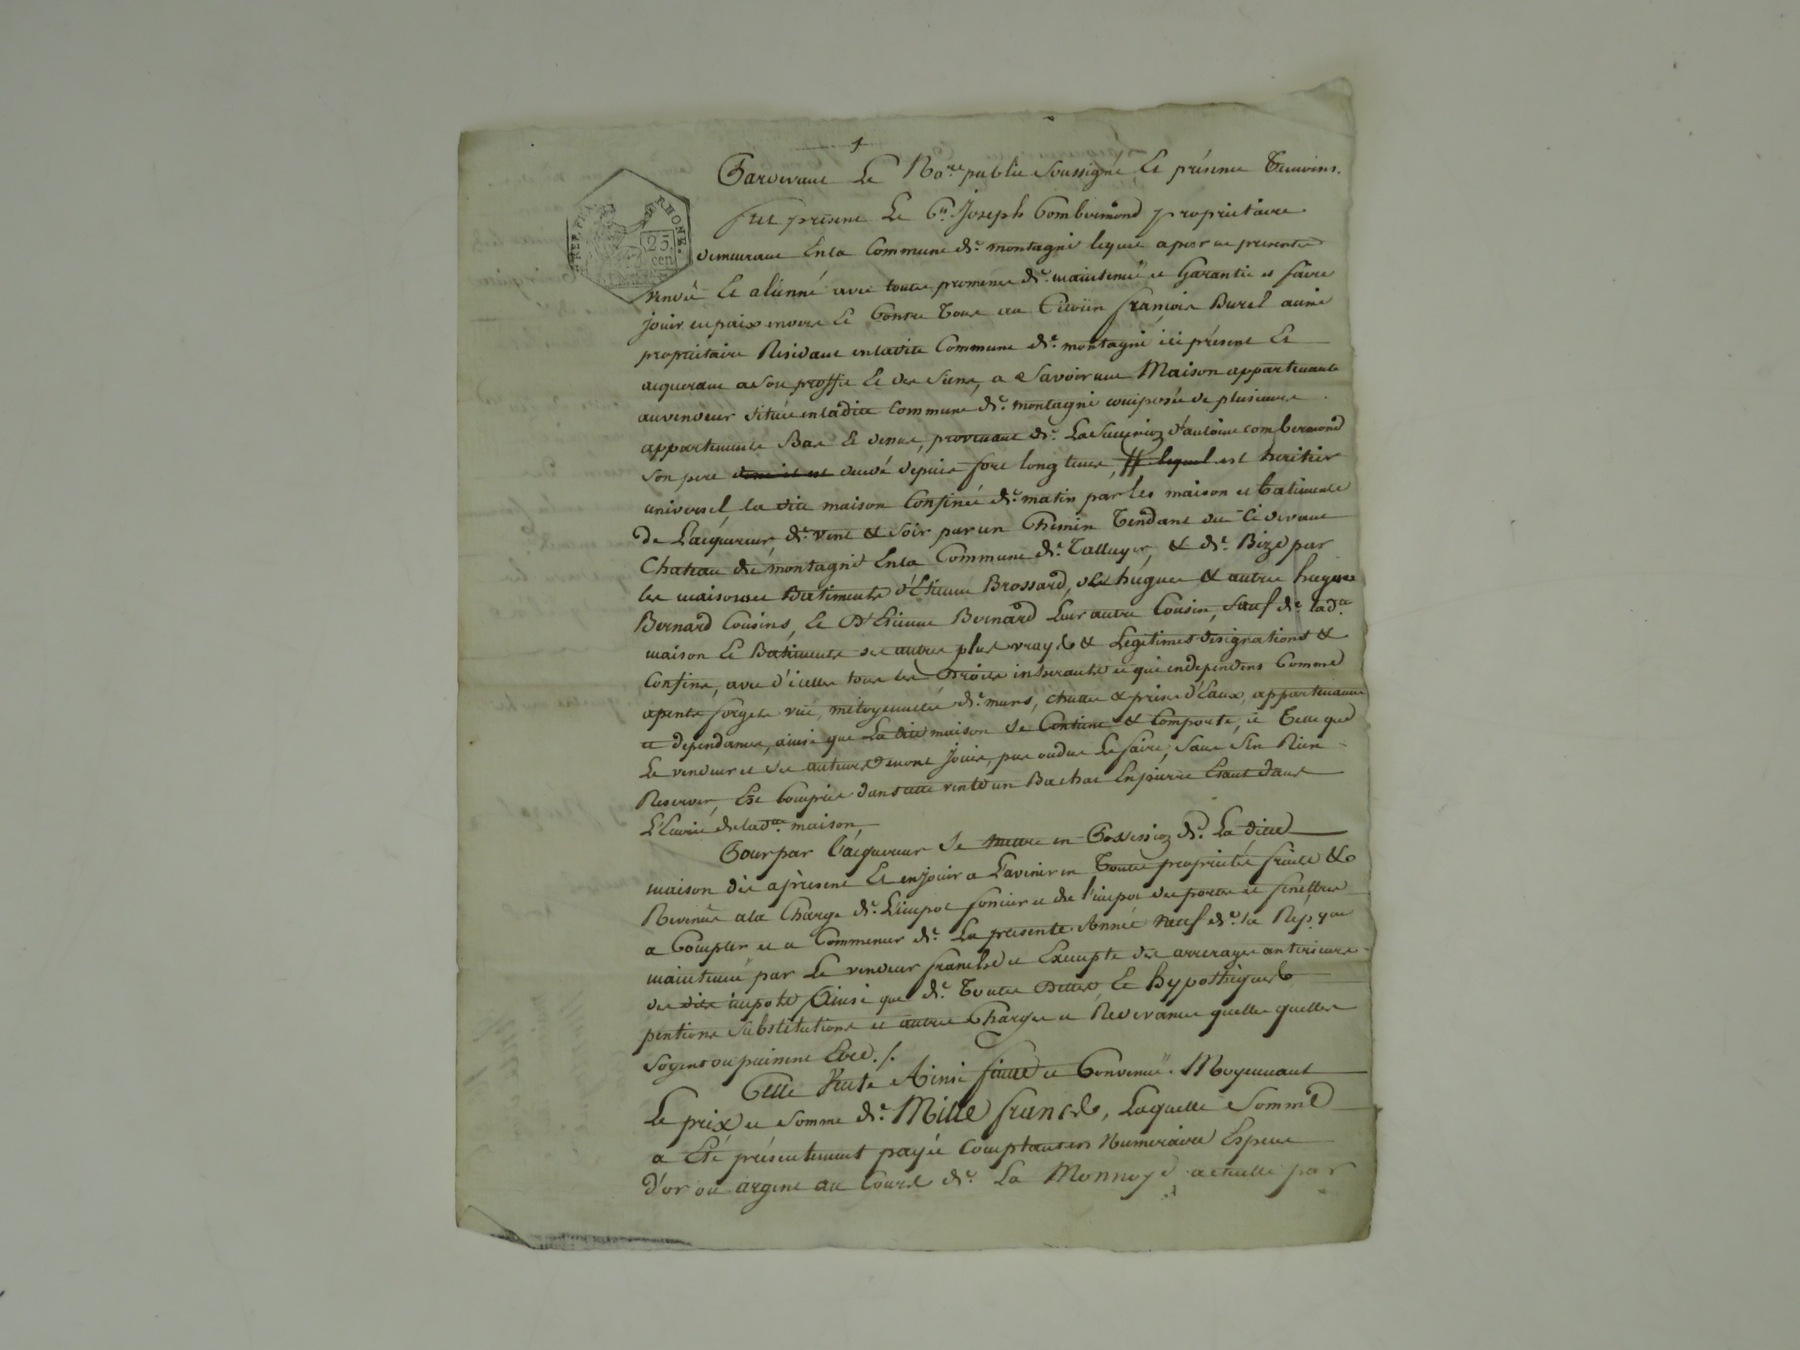 RÉP. FRA. RHONE. 25. cen
Pardevant Le No.re public Soussigné, Et présence Temoins.
fut present Le C.n Joseph Combermond propriétaire
demeurant En la Commune de montagni lequel a par ce presente
vendu Et aliénné avec toute promesse de maintenuë et Garantie et faire
jouir en paix envers Et Contre Tous au Citoïen françois Burel ainé
propriétaire Résidant en ladite Commune de montagni ici présent Et
acquerant a son proffit Et des Siens, a Savoir une Maison appartenante
au vendeur située en ladite Commune de montagni composée de plusieurs
appartements Bas Et dessus, provenant de La Succession d'antoine combermond
son pere décédé depuis fort long tems, lequel est heritier
universel, la dite maison Confinée de matin par les maison et batiments
de L'acquereur, de vent & soir par un Chemin Tendant du Ci devant
Chateau de montagni En la Commune de Talluyer, & de Bize par
les maison et Batiments d'Etienne Brossard, des hugues & autre hugues
Bernard Cousins, Et D'Etienne Bernard Leur autre Cousin, Sauf de lad.te
maison Et Batiments ses autres plus vrays & Légitimes désignations &
Confins, avec d'icelles tous les Droits inherants et qui en dependent Comme
apents forgets vuë, mitoyenneté de murs, chutte & prise d'Eaux, appartenance
et dependance, ainsi que La dite maison se Contient & Comporte, et Telle que
Le vendeur et ses auteurs en ont jouis, pu ou du Le faire, Sans S'en Rien
Reserver, Est Comprise dans cette vente un Bachat En pierre Etant dans
L'Ecurie de lad.te maison,
Pour par l'acquereur Se mettre en Possession de La dite
maison dès a présent Et en jouir a L'avenir en Toute propriété fruits &
Revenus a la Charge de L'impot foncier et de l'impot des portes et fenettres
a Compter et a Commencer de La presente Année neuf de la Rép.que
maintenuë par Le vendeur franche et Exempte des arrerages anterieurs
des dits impots Ainsi que de Toutes Dettes, Et hypothèques
pentions substitutions et autres Charges et Redevances quelles quelles
soyent ou puissent Etre./.
Cette Vente Ainsi faitte et Convenuë Moyennant
Le prix et somme de Mille francs, Laquelle Somme
a Eté présentement payée Comptant en Numeraire Especes
d'or ou argent au Cours de La Monnoye actuelle par